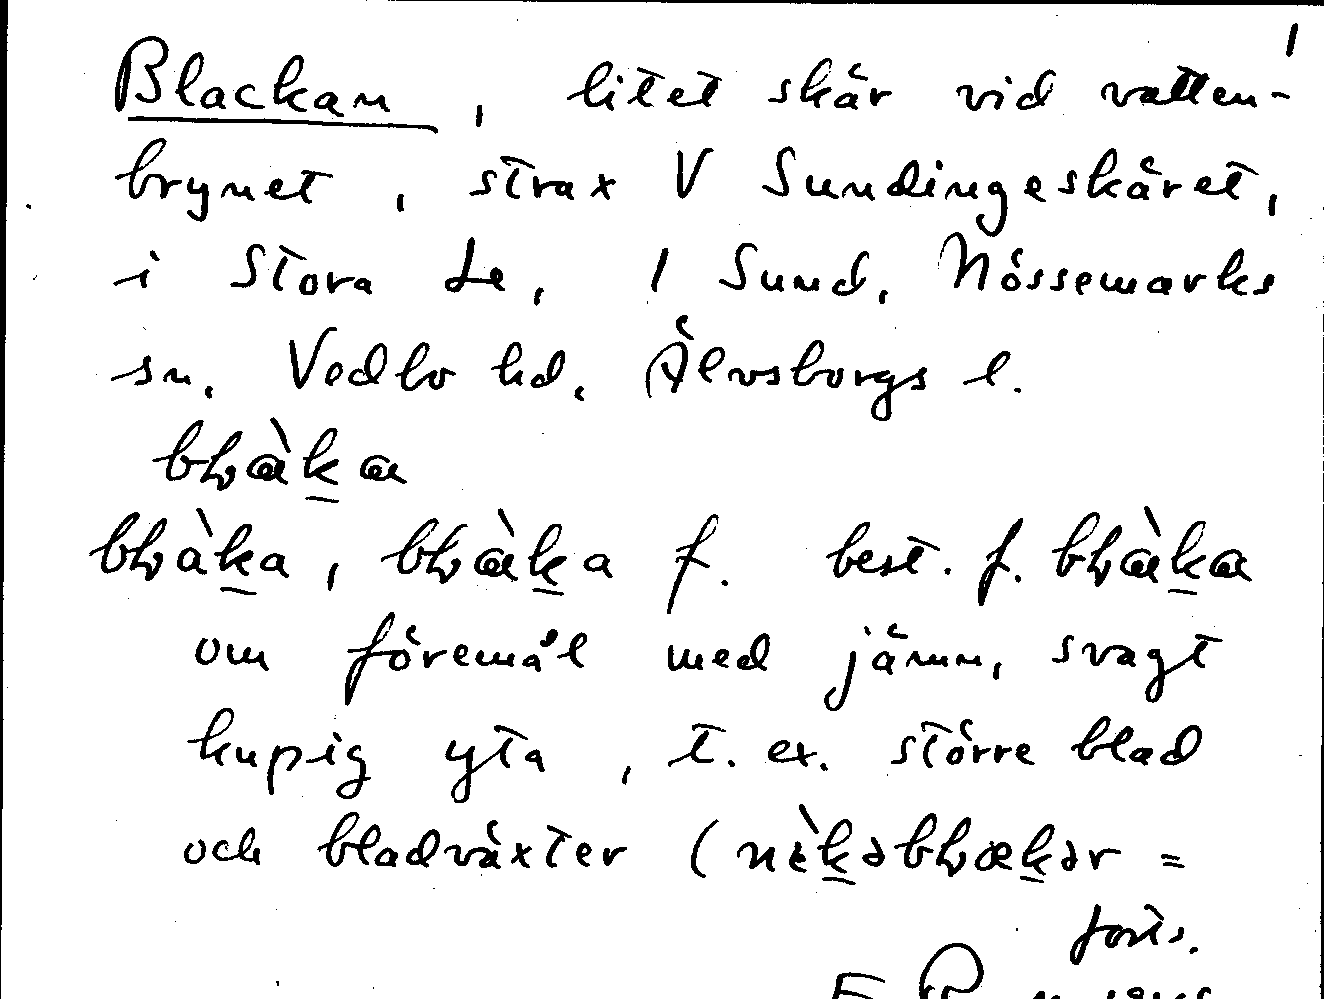 1
Blackan, litet skär vid vatten-
brynet, strax V Sundingeskäret,
i Stora Le, 1 Sund, Nössemarks
sn, Vedbo hd, Älvsborgs l.
bɫàk̲a
bɫàk̲a, bɫàk̲a f. best. f. bɫàk̲a
om föremål med jämn, svagt
kupig yta, t. ex. större blad
och bladväxter (nèk̲əbɫæk̲ər =
forts.